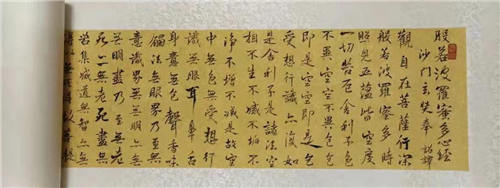 般若波羅蜜多心經
沙門玄奘奉 詔譯
觀自在菩薩行深
般若波羅蜜多時
照見五蘊皆空度
一切苦厄舍利子色
即是空空即是色
受想行識亦復如
是舍利子是諸法空
相不生不滅不垢不
淨不增不減是故空
中無色無受想行
識無眼耳鼻舌
身意無色聲香味
觸法無眼界乃至無
意識界無無明亦無
無明盡乃至無老
死亦無老死盡無
苦集滅道無智亦無